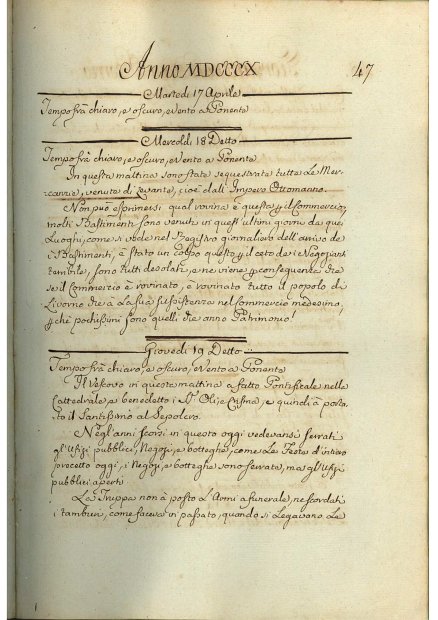 Anno MDCCCX 47
Martedì 17 Aprile
Tempo frà chiaro, e oscuro, e Vento a Ponente
Mercoldì 18 Detto
Tempo frà chiaro, e oscuro, e Vento a Ponente
In questa mattina sono state sequestrate tutte Le Mer-
canzie, venute di Levante, cioè dall'Impero Ottomanno.
Non può esprimersi qual rovina è questa p il commercio,
molti Bastimenti sono venuti in quest'ultimi giorni da quei
Luoghi, come si vede nel Registro giornaliero dell'arrivo de
i Bastimenti, è stato un colpo questo p il ceto de i Negozianti
terribile, sono tutti desolati, e ne viene p conseguenza che
se il Commercio è rovinato, è rovinato tutto il popolo di
Livorno che à La sua sussistenza nel Commercio medesimo,
p chè pochissimi sono quelli che anno Patrimonio!
Giovedì 19 Detto
Tempo frà chiaro, e oscuro, e Vento a Ponente
Il Vescovo in questa mattina à fatto Pontificale nella
Cattedrale, à benedetto i SS. Olj, e Crisma, e quindi à porta-
to il Santissimo al Sepolcro.
Negl'anni scorsi in questo oggi vedevansi serrati
gl'Ufizi pubblici, Negozj, e botteghe, come Le Feste d'intiero
precetto oggi, i Negozj, e botteghe sono serrate, ma gl'Ufizj
pubblici aperti
La Truppa non à posto L'Armi a funerale, ne scordati
i tamburi, come faceva in passato, quando si Legavano Le